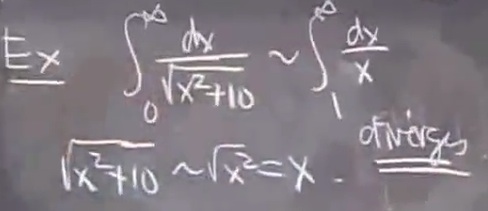 Ex ∫₀^∞ dx/√(x²+10) ~ ∫₁^∞ dx/x
√(x²+10) ~ √x² = x. diverges